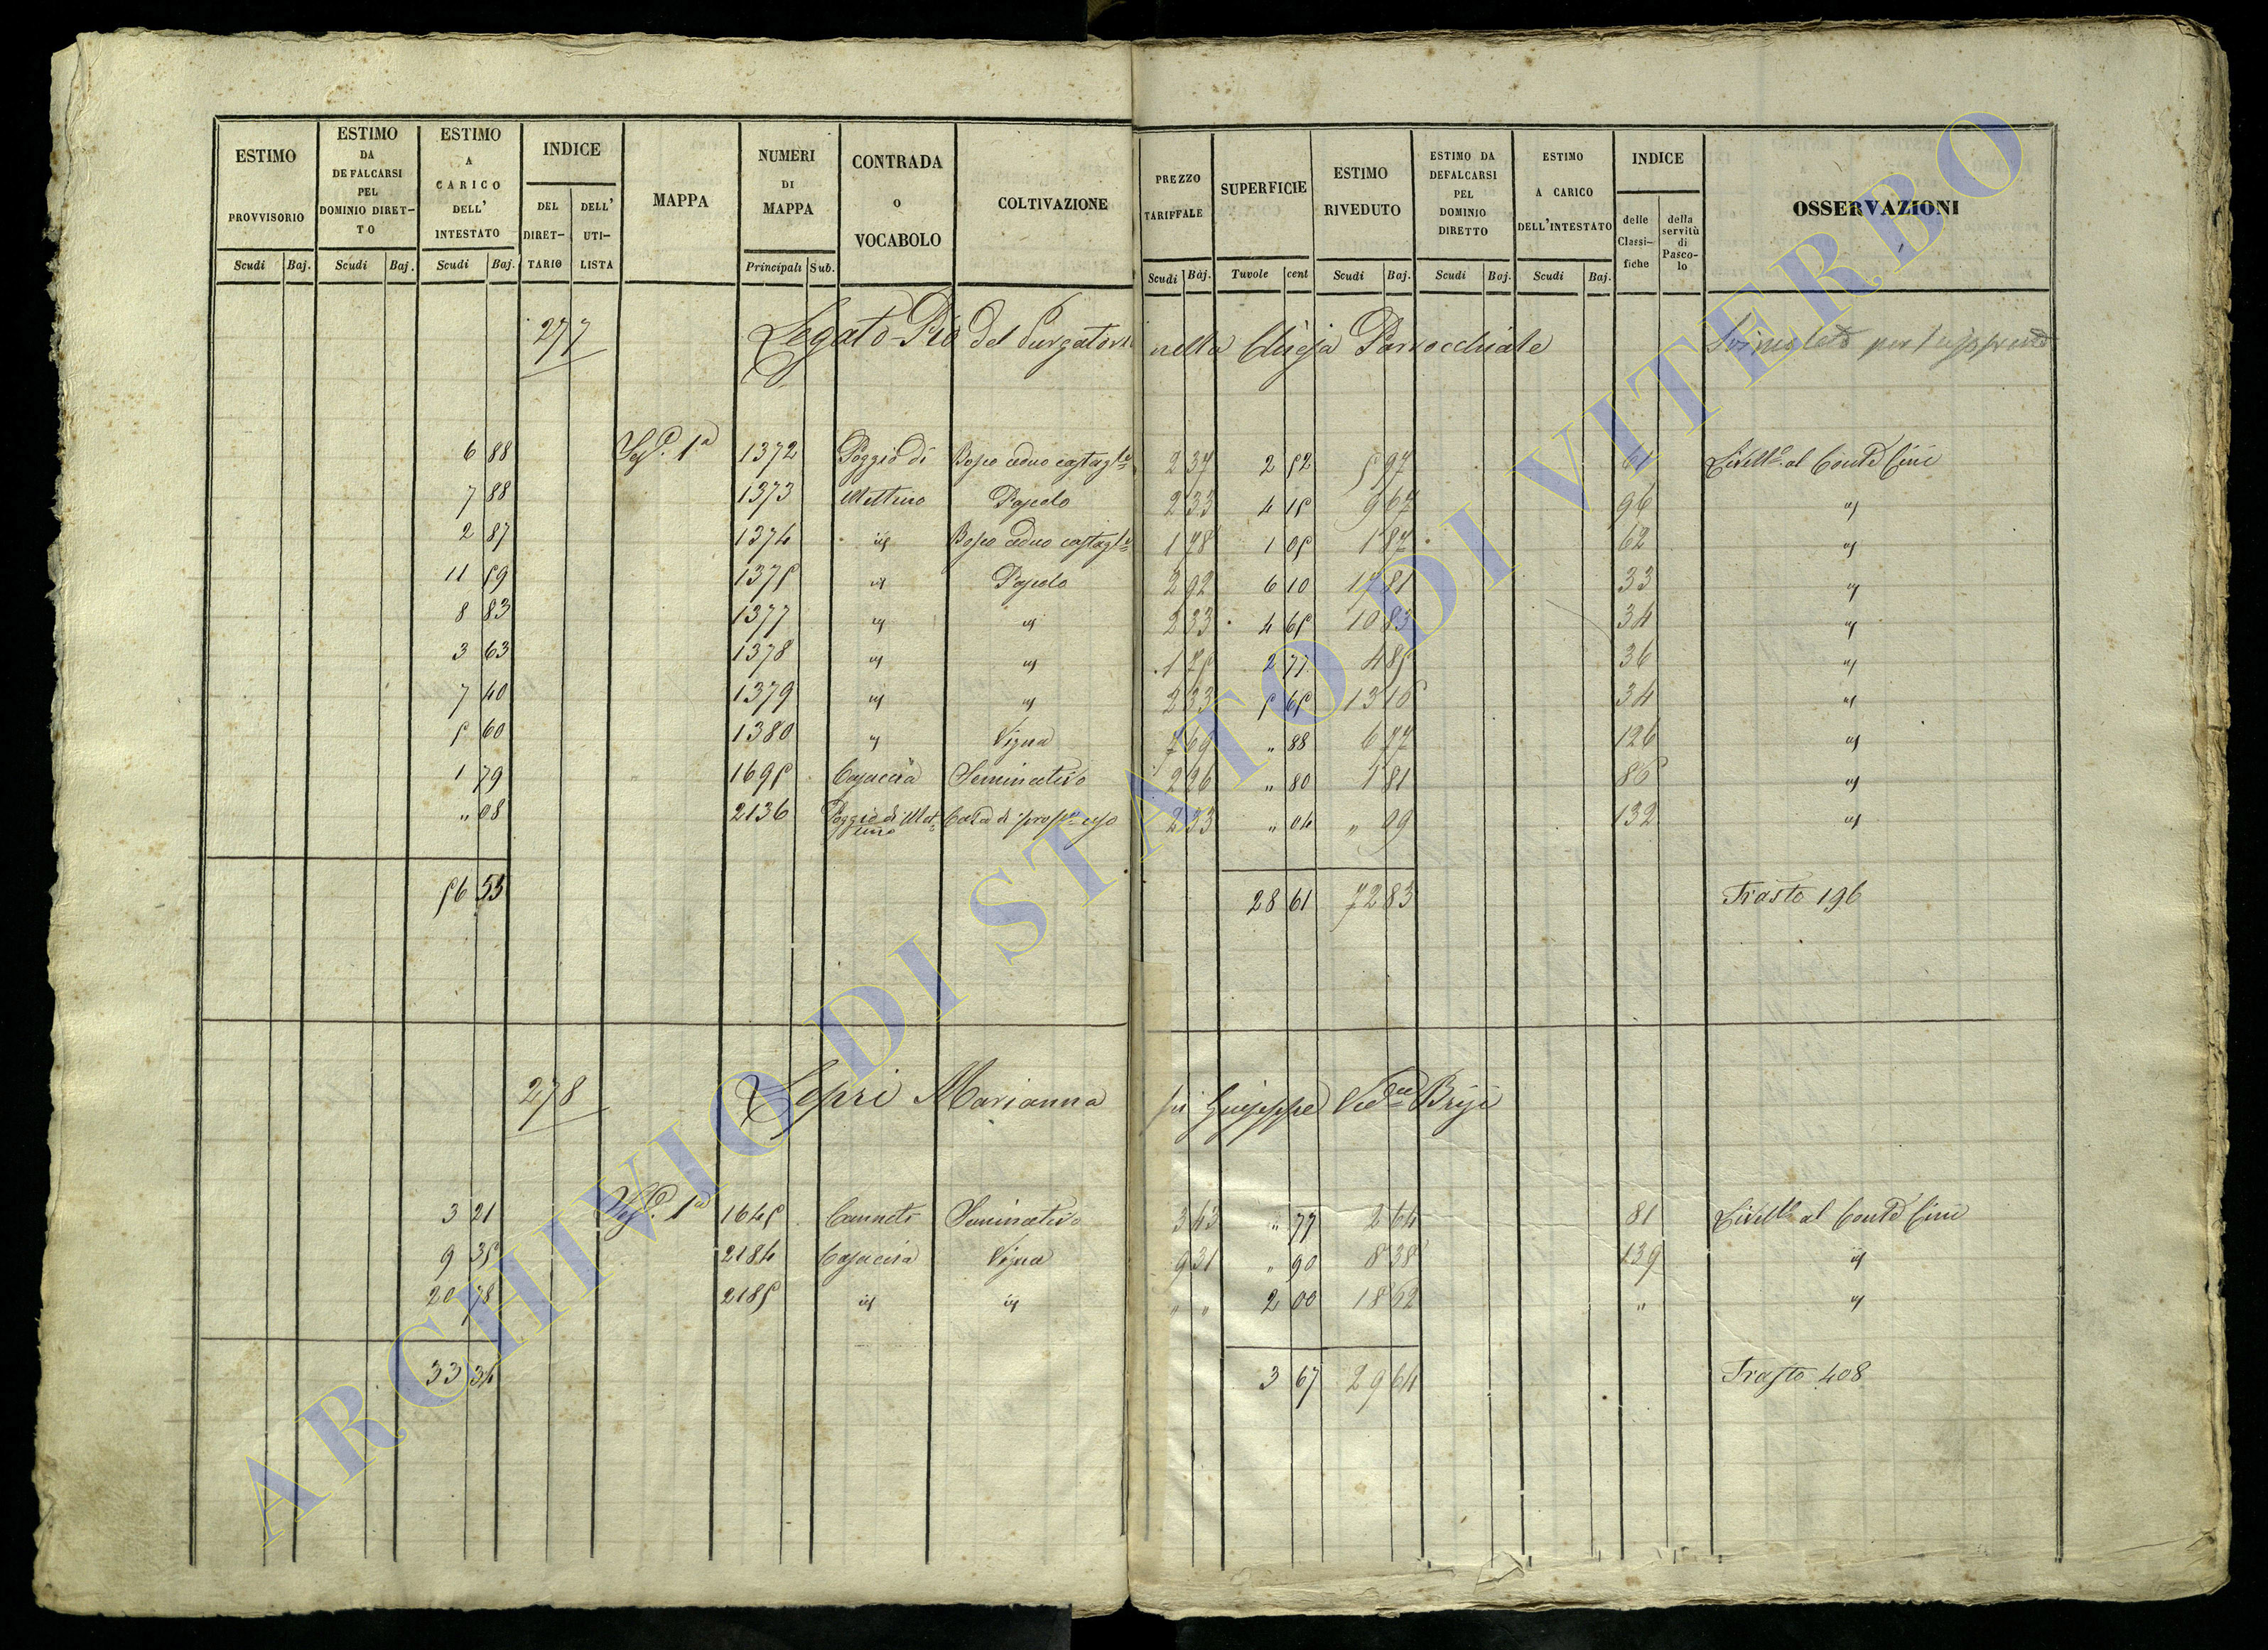 ESTIMO PROVVISORIO Scudi Baj.
ESTIMO DA DEFALCARSI PEL DOMINIO DIRET-TO Scudi Baj.
ESTIMO A CARICO DELL' INTESTATO Scudi Baj.
INDICE DEL DIRET-TARIO DELL' UTI-LISTA
MAPPA
NUMERI DI MAPPA Principali Sub.
CONTRADA O VOCABOLO
COLTIVAZIONE
PREZZO TARIFFALE Scudi Baj.
SUPERFICIE Tuvole cent
ESTIMO RIVEDUTO Scudi Baj.
ESTIMO DA DEFALCARSI PEL DOMINIO DIRETTO Scudi Baj.
ESTIMO A CARICO DELL'INTESTATO Scudi Baj.
INDICE delle Classi-fiche della servitù di Pasco-lo
OSSERVAZIONI
277 Legato Pio del Purgatorio nella Chiesa Parrocchiale
6 88 Sez. 1a 1372 Poggio di Bosco ceduo castagle 2 37 2 52 5 97 61 Livello al Conte Cini
7 88 1373 Mettino Pascolo 2 33 4 15 9 67 96 "
2 87 1374 " Bosco ceduo castagle 1 78 1 05 1 87 62 "
11 59 1375 " Pascolo 2 92 6 10 17 81 33 "
8 83 1377 " " 2 33 4 65 10 83 34 "
3 63 1378 " " 1 75 2 77 4 85 36 "
7 40 1379 " " 2 33 5 65 13 16 34 "
5 60 1380 " Vigna 7 69 " 88 6 77 126 "
1 79 1695 Casaccia Seminativo 2 26 " 80 1 81 86 "
" 08 2136 Poggio di Met-tino Casa di propo uso 2 33 " 04 " 09 132 "
56 55 28 61 72 83 Trasto 196
278 Lepri Marianna fu Giuseppe Veda Brizi
3 21 Sez. 1a 1645 Canneti Seminativo 3 43 " 77 2 64 81 Livello al Conte Cini
9 35 2184 Casaccia Vigna 9 31 " 90 8 38 139 "
20 78 2185 " " " " 2 00 18 62 " "
33 34 3 67 29 64 Trasto 408
ARCHIVIO DI STATO DI VITERBO